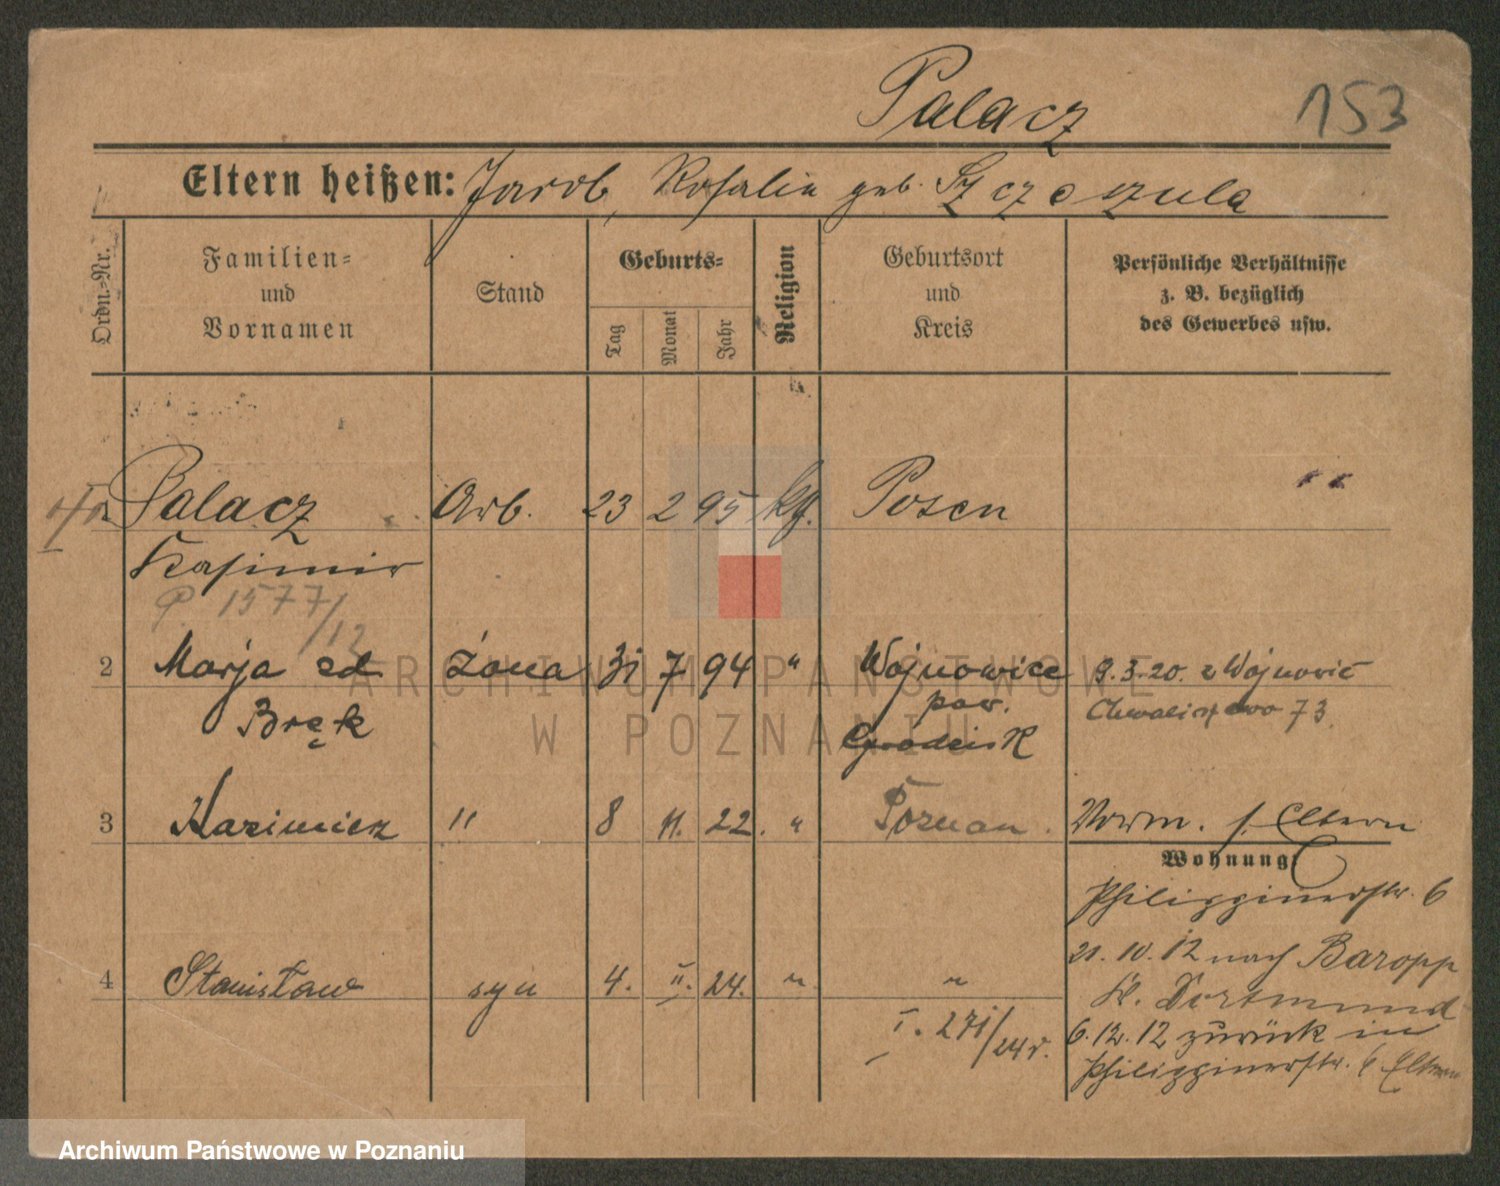 Palacz 153
Eltern heißen: Jacob, Rosalie geb. Szczeszula
Ordn.-Nr.
Familien- und Vornamen
Stand
Geburts-
Tag
Monat
Jahr
Religion
Geburtsort und Kreis
Persönliche Verhältnisse
z. B. bezüglich
des Gewerbes usw.
Palacz Arb. 23 2 95 kg. Posen
Kasimir
P 1577/12
2 Marja zd żona 31 7 94 " Wojnowice 9.3.20. z Wojnowic
Bręk pow. Chwaliszewo 73
Grodzisk
3 Kazimierz " 8 11. 22. " Poznan Vorm. s. Eltern
Wohnung:
Philippinerstr. 6
21. 10. 12 nach Baropp
K. Dortmund
4 Stanisław syn 4. II. 24. " "
I. 271/24 r. 6. 12. 12 zurück in
Philippinerstr. 6 Eltern
ARCHIWUM PAŃSTWOWE
W POZNANIU
Archiwum Państwowe w Poznaniu